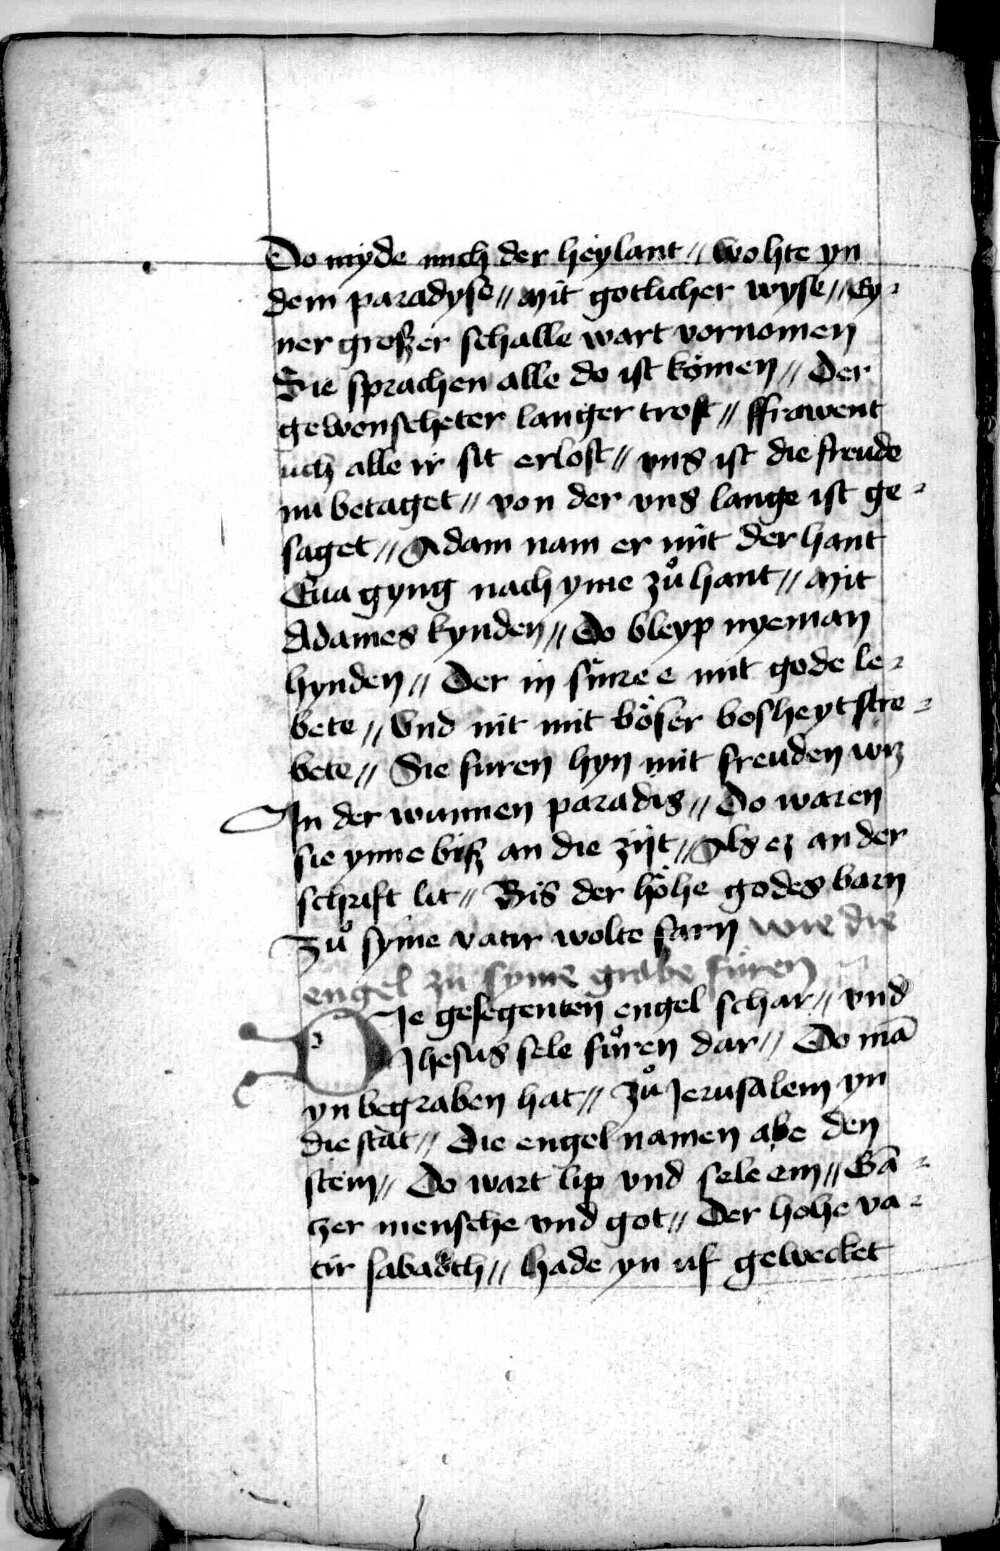 Do myde mich der heylant // wohte yn
dem paradyse // Mit gotlicher wyse // Ey-
ner großer schalle wart vornomen
Sie sprachen alle do ist komen // Der
gewonscheter langer trost // ffrawent
uch alle ir sit erlost // vns ist die freude
nu betaget // von der vns lange ist ge-
saget // Adam nam er mit der hant
Eua gyng nach yme zuͦ hant // Mit
Adames kynden // Do bleyp nyeman
hynden // Der in sinre e mit gode le-
bete // Vnd nit mit boͤser bosheyt stre-
bete // Sie furen hyn mit freuden wiz
In der wunnen paradis // Do waren
sie ynne biß an die zijt // Als ez an der
schrift lit // Bis der hoͤhe godes barn
Zuͦ syme vatir wolte farn wie die
engel zu syme grabe furen
DIe gesegenten engel schar // vnd
Jhesus sele fuͦren dar // Do mā
yn begraben hat // Zuͦ Jerusalem yn
die stat // Die engel namen abe den
stein // Do wart lip vnd sele ein // Gā-
tzer mensche vnd got // Der hohe va-
tir sabaoth // hade yn uf gewecket